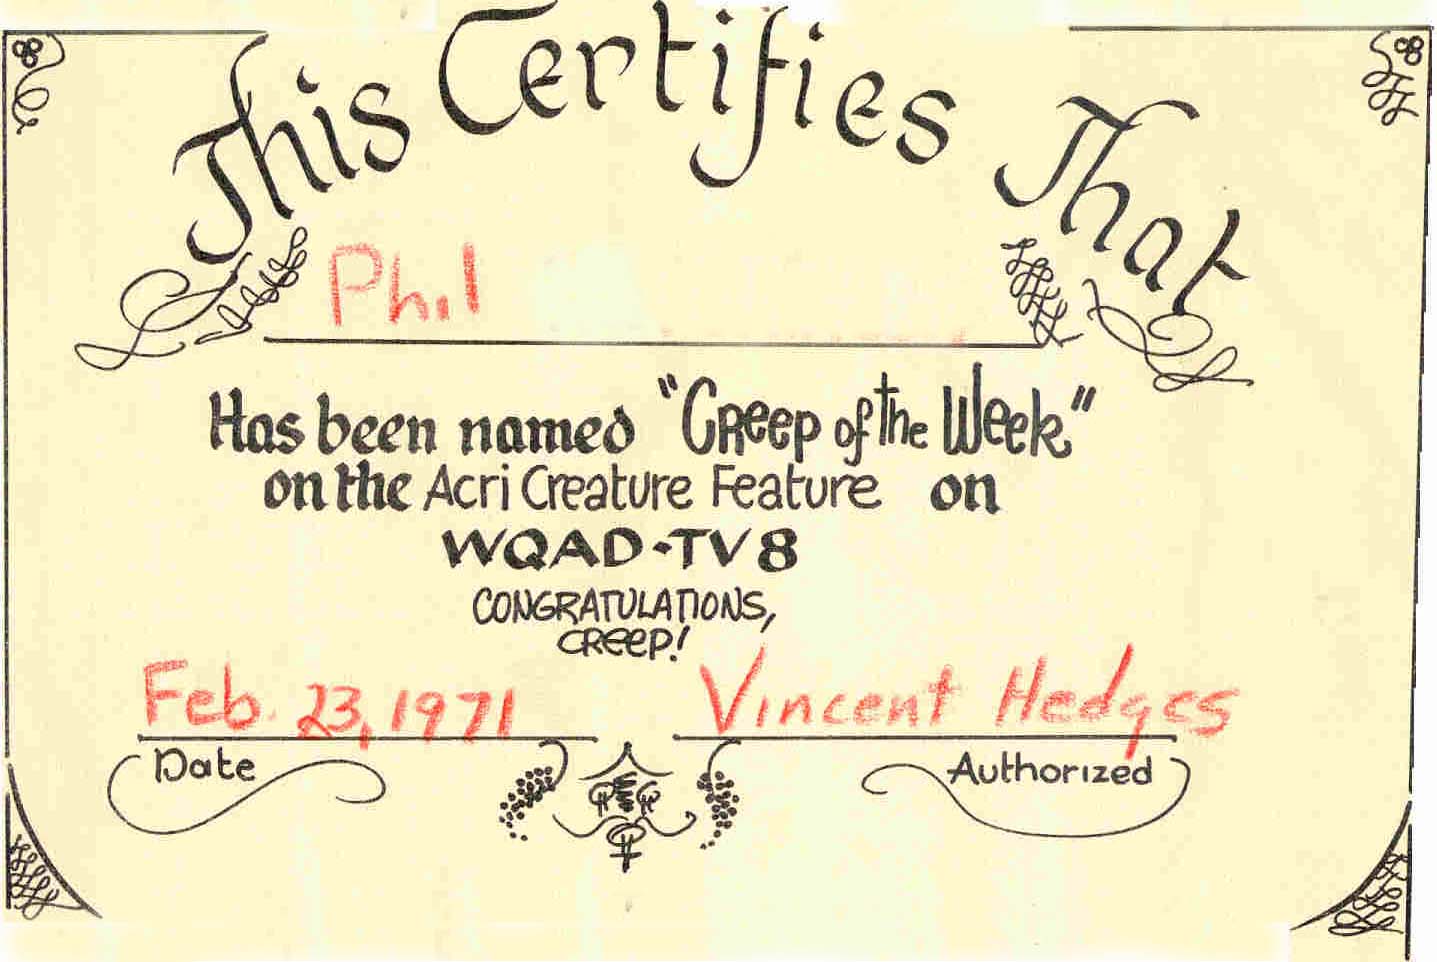 This Certifies That
Phil
Has been named "Creep of the Week"
on the Acri Creature Feature on
WQAD-TV8
CONGRATULATIONS,
CREEP!
Feb. 23, 1971 Vincent Hedges
Date Authorized